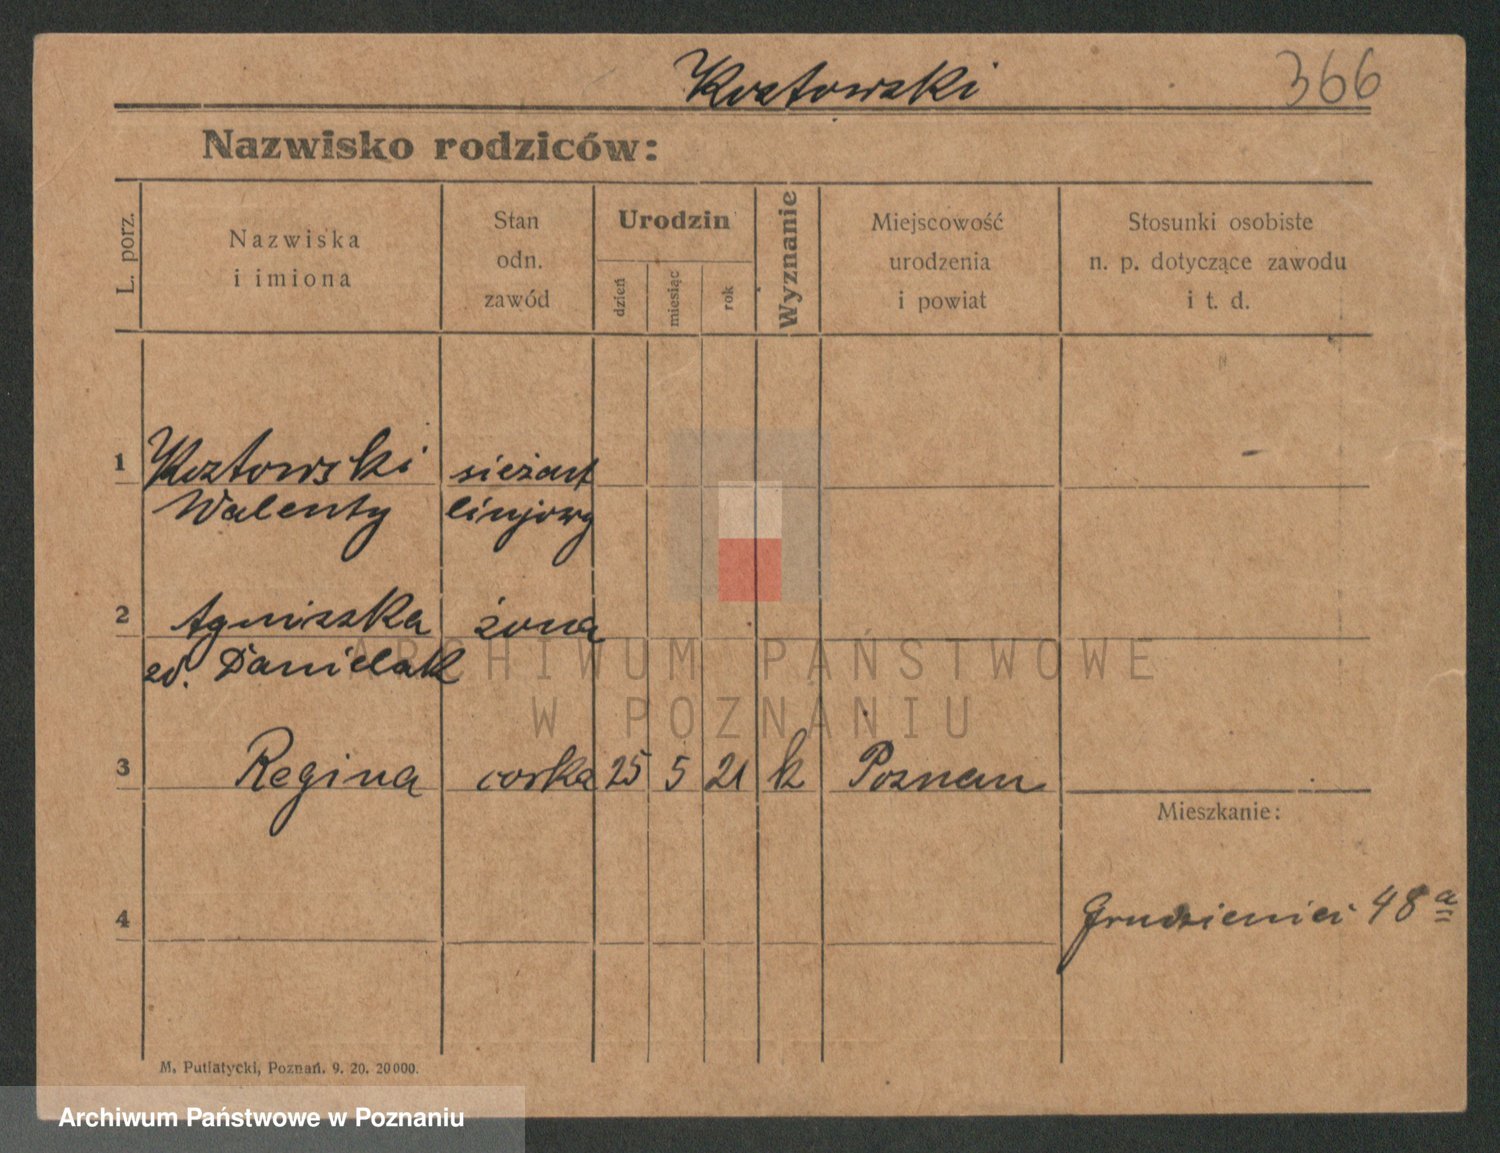 Kozłowski 366
Nazwisko rodziców:
L. porz.
Nazwiska
i imiona
Stan
odn.
zawód
Urodzin
dzień
miesiąc
rok
Wyznanie
Miejscowość
urodzenia
i powiat
Stosunki osobiste
n. p. dotyczące zawodu
i t. d.
1 Kozłowski sieżant
Walenty linjowy
2 Agniszka żona
zd. Danielak
3 Regina corka 25 5 21 k Poznan
Mieszkanie:
4 Grudzieniec 48 a
M. Putiatycki, Poznań. 9. 20. 20000.
ARCHIWUM PAŃSTWOWE
W POZNANIU
Archiwum Państwowe w Poznaniu